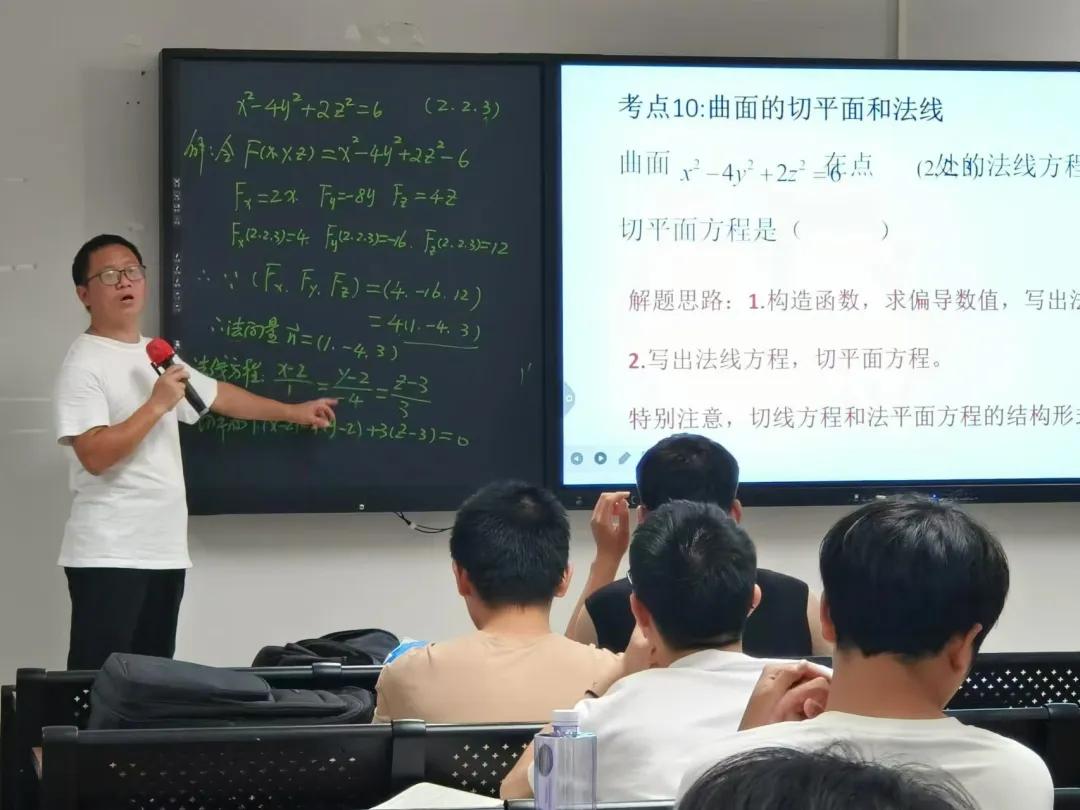 x²-4y²+2z²=6 (2.2.3)
解:令 F(x.y.z)=x²-4y²+2z²-6
Fx=2x Fy=-8y Fz=4z
Fx(2.2.3)=4. Fy(2.2.3)=-16. Fz(2.2.3)=12
∴ ∵ (Fx. Fy. Fz)=(4.-16.12)
=4(1.-4.3)
∴法向量 n⃗=(1.-4.3)
法线方程: x-2/1 = y-2/-4 = z-3/3
-2)+3(z-3)=0
考点10:曲面的切平面和法线
曲面 x²-4y²+2z²=6 在点 (2,2,3)处的法线方程
切平面方程是（ ）
解题思路：1.构造函数，求偏导数值，写出法
2.写出法线方程，切平面方程。
特别注意，切线方程和法平面方程的结构形式